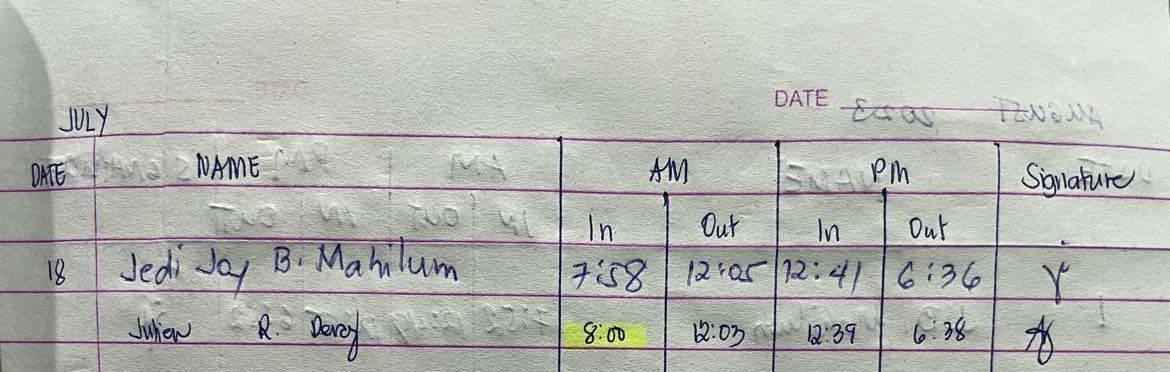 DATE
JULY
DATE NAME AM PM Signature
In Out In Out
18 Jedi Jay B. Mahilum 7:58 12:05 12:41 6:36
R. 8:00 12:03 12:39 6:38